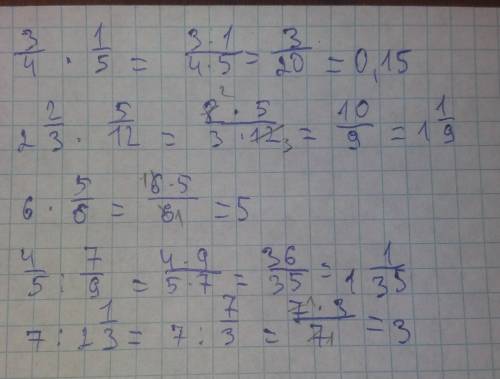 3/4 · 1/5 = 3·1/4·5 = 3/20 = 0,15
2 2/3 · 5/12 = 8² · 5/3 · 12₃ = 10/9 = 1 1/9
6 · 5/6 = ¹6·5/6₁ = 5
4/5 : 7/9 = 4·9/5·7 = 36/35 = 1 1/35
7 : 2 1/3 = 7 : 7/3 = 7¹·3/7₁ = 3